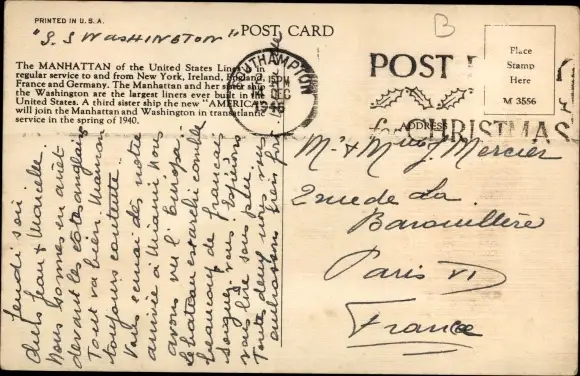 PRINTED IN U. S. A.
"S.S WASHINGTON"
POST CARD
The MANHATTAN of the United States Lines, in
regular service to and from New York, Ireland, England,
France and Germany. The Manhattan and her sister ship
the Washington are the largest liners ever built in the
United States. A third sister ship the new "AMERICA"
will join the Manhattan and Washington in transatlantic
service in the spring of 1940.
SOUTHAMPTON
PM
DEC
B
Place
Stamp
Here
M 3556
POST
for CHRISTMAS
ADDRESS
Jeudi soir
chers Jean & Marcelle.
Nous sommes en arrêt
devant les côtes anglaises
Tout va bien. Maman
toujours contente.
dès notre
arrivée à Miami. Nous
avons vu l'Europa.
Le bateau est archi comble
beaucoup de Français
vous
vous lire sous peu.
Toutes deux nous vous
embrassons bien fort
Mr & Mme J. Mercier
2 rue de La
Barouillère
Paris VI
France